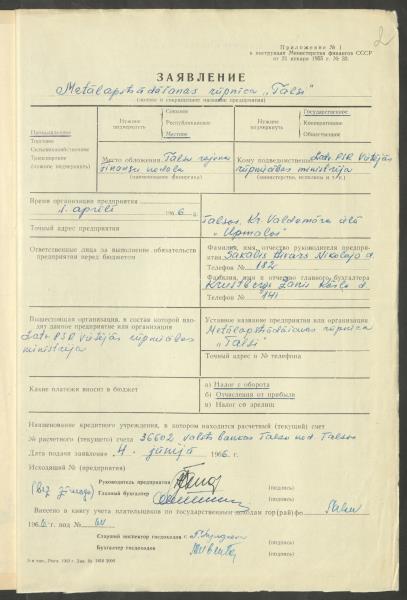 2
Приложение № 1
к инструкции Министерства финансов СССР
от 21 января 1955 г. № 30.
ЗАЯВЛЕНИЕ
Metālapstrādāšanas rūpnīca „Talsi”
(полное и сокращенное название предприятия)
Промышленное
Торговое
Сельскохозяйственное
Транспортное
(нужное подчеркнуть)
Нужное подчеркнуть
Союзное
Республиканское
Местное
Нужное подчеркнуть
Государственное
Кооперативное
Общественное
Место обложения Talsu rajona
finansu nodaļa
(наименование финоргана)
Кому подведомственно Latv. PSR Vietējās
rūpniecības ministrija
(министерство, исполком и т. п.)
Время организации предприятия
1. aprīlī 1966 г.
Точный адрес предприятия
Talsos, Kr. Valdemāra ielā
„Upmalas”
Ответственные лица за выполнение обязательств
предприятия перед бюджетом
Фамилия, имя, отчество руководителя предприятия
Sakalis Aivars Nikolaja d.
Телефон № 182
Фамилия, имя и отчество главного бухгалтера
Krustbergs Žanis Kārļa d.
Телефон № 141
Вышестоящая организация, в состав которой входит данное предприятие или организация
Latv. PSR Vietējās rūpniecības
ministrija
Уставное название предприятия или организации
Metālapstrādāšanas rūpnīca
„Talsi”
Точный адрес и № телефона
Какие платежи вносит в бюджет
а) Налог с оборота
б) Отчисления от прибыли
в) Налог со зрелищ
Наименование кредитного учреждения, в котором находится расчетный (текущий) счет
№ расчетного (текущего) счета 36602 valsts bankas Talsu nod. Talsos
Дата подачи заявления „4. jūnijā 1966 г.
Исходящий № (предприятия)
(bez zīmoga)
Руководитель предприятия
(подпись)
Главный бухгалтер
(подпись)
Внесено в книгу учета плательщиков по государственным доходам гор(рай)фо
1966 г. под №
Старший инспектор госдоходов
(подпись)
Бухгалтер госдоходов
(подпись)